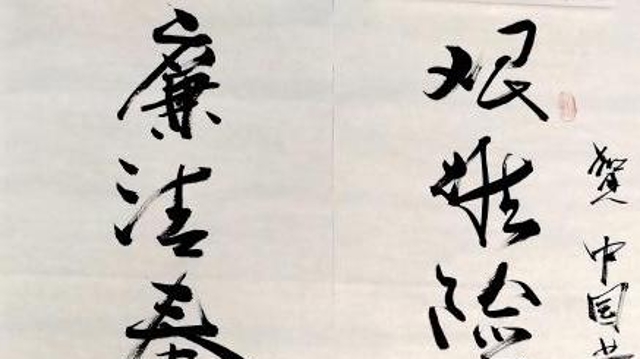 贺中国共
艰难险
廉洁奉